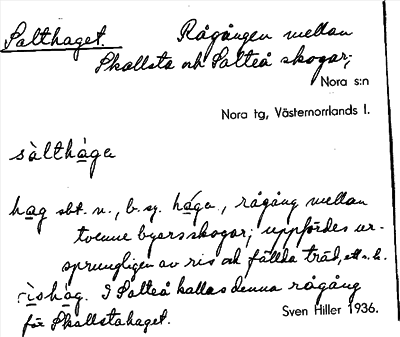 Salthaget. Rågången mellan
Skallsta och Salteå skogar;
Nora s:n
Nora tg, Västernorrlands l.
sàlthàga
hag sbt. n., b. sg. hága, rågång mellan
tvenne byars skogar; uppfördes ur-
sprungligen av ris och fällda träd, ett s.k.
rishag. I Salteå kallas denna rågång
för Skallstahaget.
Sven Hiller 1936.